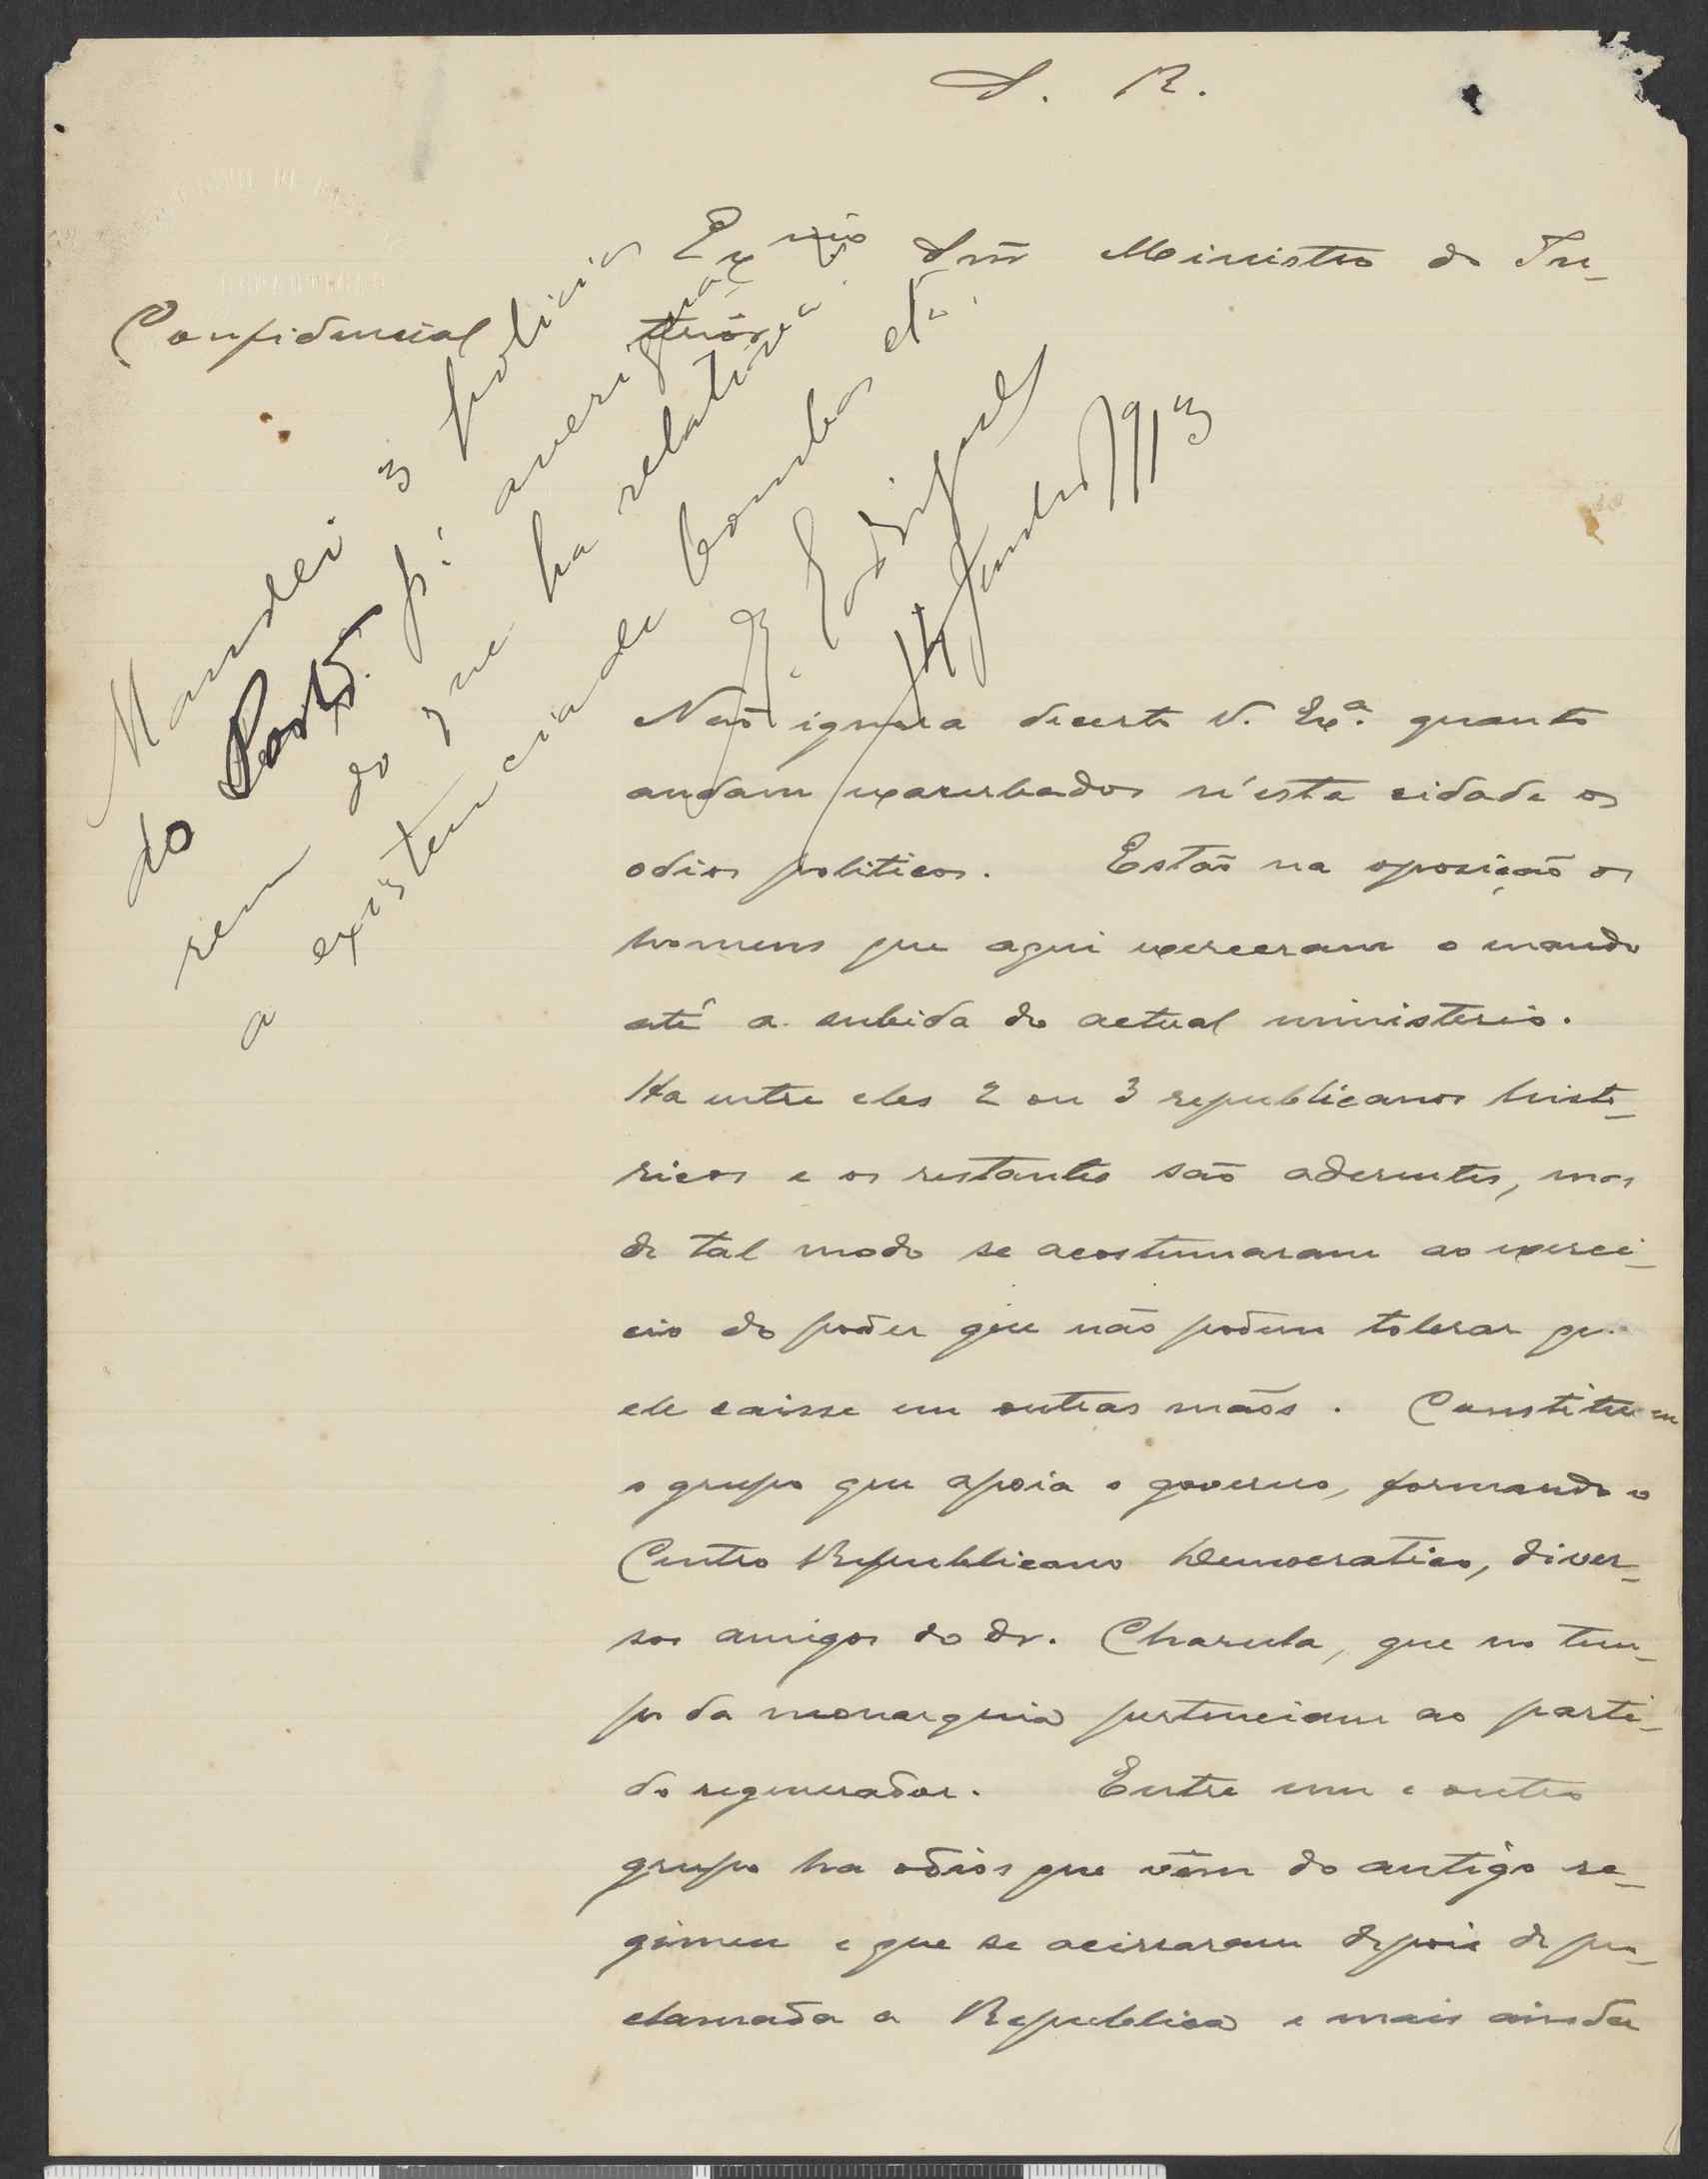 S. R.
Ex.mo Snr Ministro do In-
terior
Confidencial
Mandei 3 policias
do Porto p.a averigua-
rem do que ha relativo a
a existencia de bombas etc.
R. Rodrigues
14 Junho 1913
Não ignora decerto V. Ex.ª quanto
andam exacerbados n'esta cidade os
odios politicos. Estão na oposição os
homens que aqui exerceram o mando
até a subida do actual ministerio.
Ha entre eles 2 ou 3 republicanos histo-
ricos e os restantes são aderentes, mas
de tal modo se acostumaram ao exerci-
cio do poder que não podem tolerar que
ele caisse em outras mãos. Constituem
o grupo que apoia o governo, formando o
Centro Republicano Democratico, diver-
sos amigos do dr. Charula, que no tem-
po da monarquia pertenciam ao parti-
do regenerador. Entre um e outro
grupo ha odios que vêm do antigo re-
gimen e que se acirraram depois de pro-
clamada a Republica e mais ainda